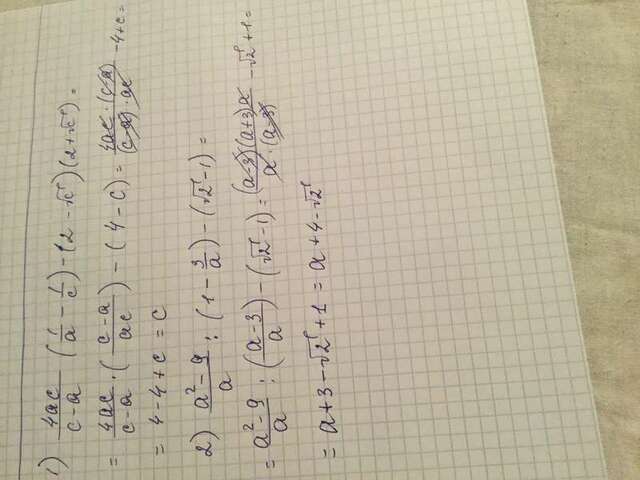 1) 4ac/(c-a) (1/a - 1/c) - (2 - √c)(2 + √c) =
= 4ac/(c-a) · ((c-a)/ac) - (4 - c) = 4ac·(c-a)/((c-a)·ac) - 4 + c =
= 4 - 4 + c = c
2) (a² - 9)/a : (1 - 3/a) - (√2 - 1) =
= (a² - 9)/a : ((a-3)/a) - (√2 - 1) = (a-3)(a+3)a/(a·(a-3)) - √2 + 1 =
= a + 3 - √2 + 1 = a + 4 - √2